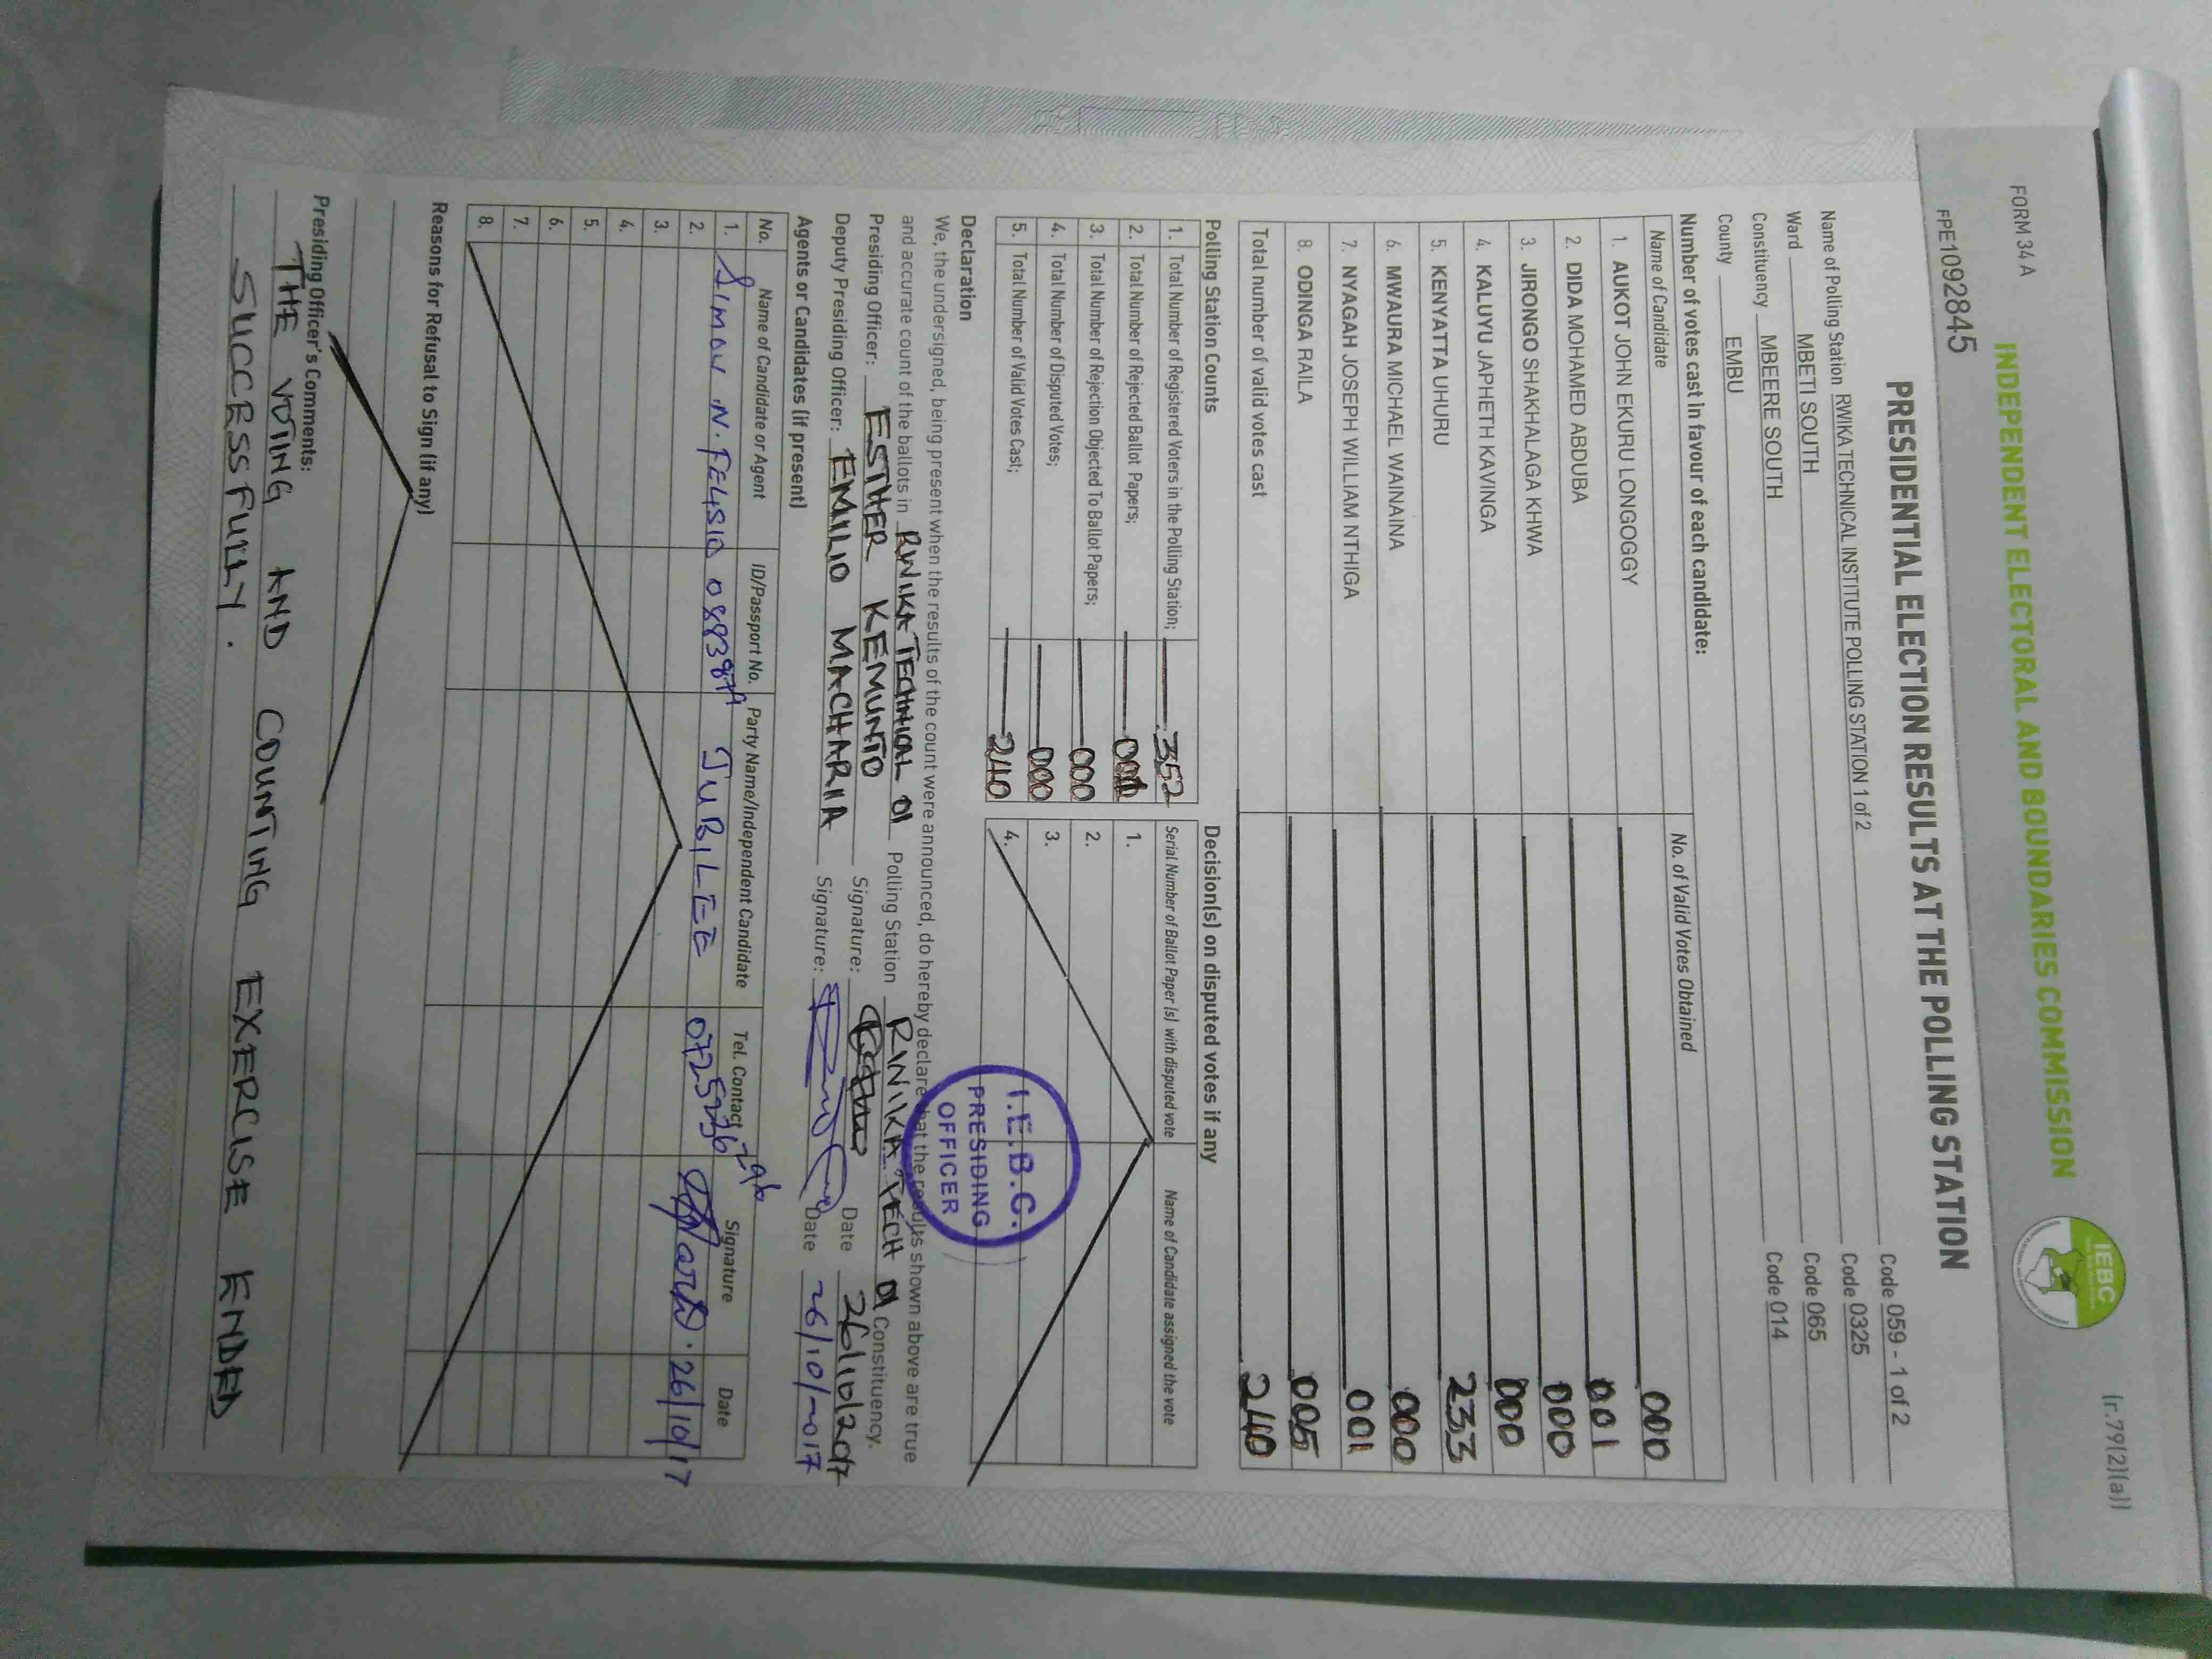 FORM 34 A
(r.79(2)(a))
IEBC
INDEPENDENT ELECTORAL AND BOUNDARIES COMMISSION
FPE1092845
PRESIDENTIAL ELECTION RESULTS AT THE POLLING STATION
Name of Polling Station RWIKA TECHNICAL INSTITUTE POLLING STATION 1 of 2 Code 059 - 1 of 2
Ward MBETI SOUTH Code 0325
Constituency MBEERE SOUTH Code 065
County EMBU Code 014
Number of votes cast in favour of each candidate:
Name of Candidate No. of Valid Votes Obtained
1. AUKOT JOHN EKURU LONGOGGY 000
2. DIDA MOHAMED ABDUBA 001
3. JIRONGO SHAKHALAGA KHWA 000
4. KALUYU JAPHETH KAVINGA 000
5. KENYATTA UHURU 233
6. MWAURA MICHAEL WAINAINA 000
7. NYAGAH JOSEPH WILLIAM NTHIGA 001
8. ODINGA RAILA 005
Total number of valid votes cast 240
Polling Station Counts
1. Total Number of Registered Voters in the Polling Station; 352
2. Total Number of Rejected Ballot Papers;
3. Total Number of Rejection Objected To Ballot Papers; 000
4. Total Number of Disputed Votes; 000
5. Total Number of Valid Votes Cast; 240
Decision(s) on disputed votes if any
Serial Number of Ballot Paper (s) with disputed vote Name of Candidate assigned the vote
1.
2.
3.
4.
I.E.B.C.
PRESIDING
OFFICER
Declaration
We, the undersigned, being present when the results of the count were announced, do hereby declare that the results shown above are true
and accurate count of the ballots in RWIKA TECHNICAL 01 Polling Station RWIKA TECH 01 Constituency.
Presiding Officer: ESTHER KEMUNTO Signature: Date 26/10/2017
Deputy Presiding Officer: EMILIO MACHARIA Signature: Date 26/10/2017
Agents or Candidates (if present)
No. Name of Candidate or Agent ID/Passport No. Party Name/Independent Candidate Tel. Contact Signature Date
1. SIMON N. JUBILEE 26/10/17
2.
3.
4.
5.
6.
7.
8.
Reasons for Refusal to Sign (if any)
Presiding Officer's Comments:
THE VOTING AND COUNTING EXERCISE ENDED
SUCCESSFULLY.